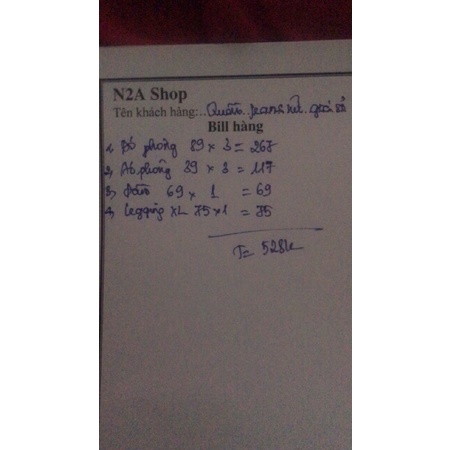 N2A Shop
Tên khách hàng:
Bill hàng
1, Bộ phông 89 x 3 = 267
2, Áo phông 39 x 3 = 117
3, 69 x 1 = 69
4, Legging XL 75 x 1 = 75
T = 528k